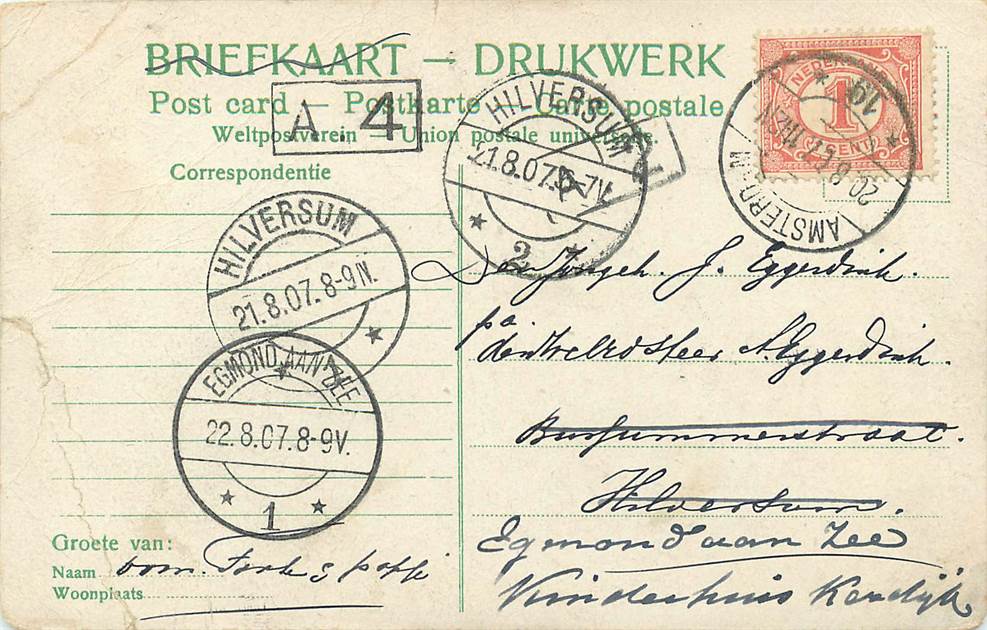 BRIEFKAART — DRUKWERK
Post card — Postkarte — Carte postale
Weltpostverein — Union postale universelle
Correspondentie
A. 4
NEDERLAND
1
CENT
AMSTERDAM
20.8.07. 11-12
HILVERSUM
21.8.07. 5-7V.
2
HILVERSUM
21.8.07. 8-9N.
EGMOND AAN ZEE
22.8.07. 8-9V.
1
Den Jongeh. J. Eggerdink.
p/a.
den Weled. Heer A. Eggerdink.
Bussummerstraat.
Hilversum.
Egmond aan Zee
Kinderhuis
Groete van:
Naam oom
Woonplaats